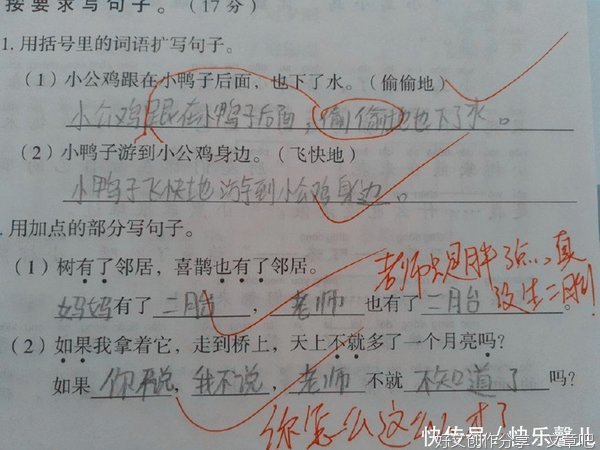 按要求写句子。(17分)
1. 用括号里的词语扩写句子。
(1) 小公鸡跟在小鸭子后面，也下了水。(偷偷地)
小公鸡跟在小鸭子后面，偷偷地也下了水。
(2) 小鸭子游到小公鸡身边。(飞快地)
小鸭子飞快地游到小公鸡身边。
. 用加点的部分写句子。
(1) 树有了邻居，喜鹊也有了邻居。
老师只是胖了点…真没生二胎!
妈妈有了二月台，老师也有了二月台
(2) 如果我拿着它，走到桥上，天上不就多了一个月亮吗?
如果 你不说，我不说，老师 不就 不知道了 吗?
你怎么这么人才了
快传号／快乐馨儿
好文创作分享 文章吧